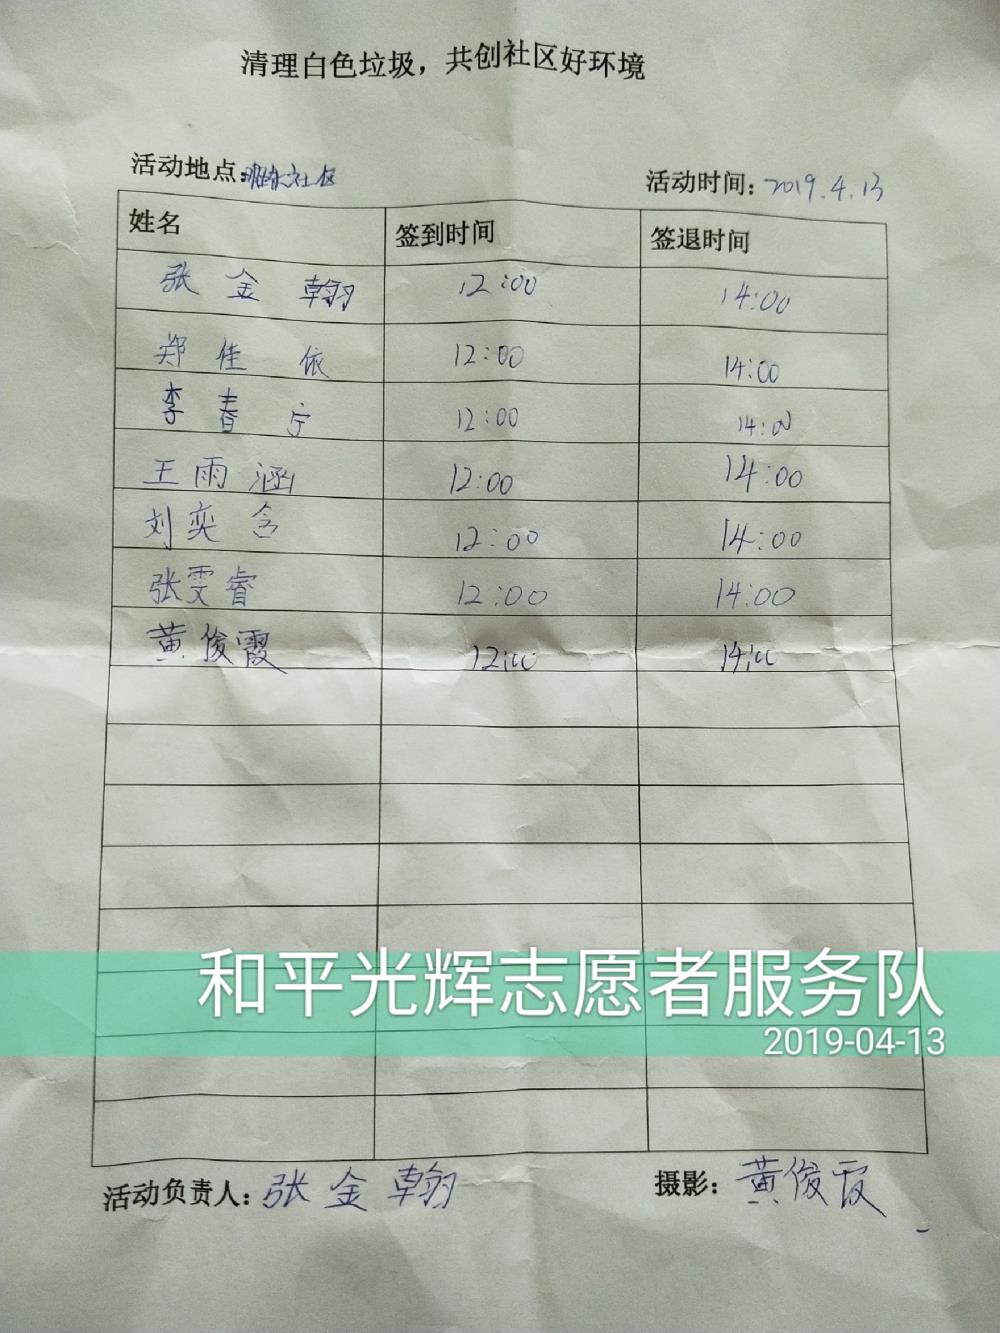 清理白色垃圾，共创社区好环境
活动地点：社区 活动时间：2019.4.13
姓名 签到时间 签退时间
张金翰 12:00 14:00
郑佳依 12:00 14:00
李春宁 12:00 14:00
王雨涵 12:00 14:00
刘奕含 12:00 14:00
张雯睿 12:00 14:00
黄俊霞 12:00 14:00
和平光辉志愿者服务队
2019-04-13
活动负责人：张金翰 摄影：黄俊霞